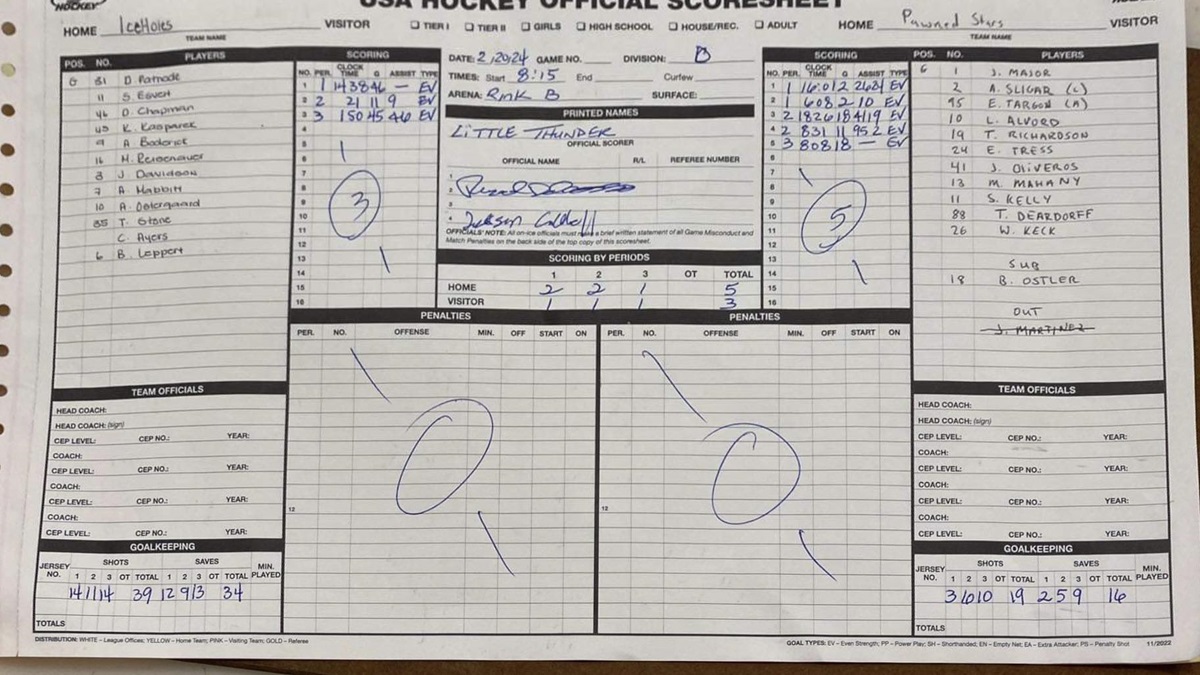 HOCKEY
USA HOCKEY OFFICIAL SCORESHEET
HOME IceHoles VISITOR
TEAM NAME
☐ TIER I ☐ TIER II ☐ GIRLS ☐ HIGH SCHOOL ☐ HOUSE/REC. ☐ ADULT
HOME Pawned Stars VISITOR
TEAM NAME
POS. NO. PLAYERS
G 31 D. Patnode
11 S. Egvert
46 D. Chapman
45 K. Kasparek
9 A. Boderick
16 M.
3 J. Davidson
7 A. Habbitt
10 A. Ostergaard
35 T. Stone
C. Ayers
6 B. Leppert
TEAM OFFICIALS
HEAD COACH:
HEAD COACH: (sign)
CEP LEVEL: CEP NO.: YEAR:
COACH:
CEP LEVEL: CEP NO.: YEAR:
COACH:
CEP LEVEL: CEP NO.: YEAR:
COACH:
CEP LEVEL: CEP NO.: YEAR:
GOALKEEPING
JERSEY NO. SHOTS SAVES MIN. PLAYED
1 2 3 OT TOTAL 1 2 3 OT TOTAL
14 11 14 39 12 9 13 34
TOTALS
SCORING
NO. PER. CLOCK TIME G ASSIST TYPE
1 1 1438 46 — EV
2 2 21 11 9 EV
3 3 150 45 46 EV
4
5
6
7
8
9
10
11
12
13
14
15
16
3
DATE: 2/20/24 GAME NO. DIVISION: B
TIMES: Start 8:15 End Curfew
ARENA: Rink B SURFACE:
PRINTED NAMES
LITTLE THUNDER
OFFICIAL SCORER
OFFICIAL NAME R/L REFEREE NUMBER
1
2
3
4
OFFICIALS' NOTE: All on-ice officials must make a brief written statement of all Game Misconduct and
Match Penalties on the back side of the top copy of this scoresheet.
SCORING BY PERIODS
1 2 3 OT TOTAL
HOME 2 2 1 5
VISITOR 1 1 1 3
SCORING
NO. PER. CLOCK TIME G ASSIST TYPE
1 1 16:01 2 26 24 EV
2 1 608 2 10 EV
3 2 1826 18 41 19 EV
4 2 831 11 95 2 EV
5 3 808 18 — EV
6
7
8
9
10
11
12
13
14
15
16
5
PENALTIES
PER. NO. OFFENSE MIN. OFF START ON
12
0
PENALTIES
PER. NO. OFFENSE MIN. OFF START ON
12
0
POS. NO. PLAYERS
G 1 J. MAJOR
2 A. SLIGAR (C)
95 E. TARGON (A)
10 L. ALVORD
19 T. RICHARDSON
24 E. TRESS
41 J. OLIVEROS
13 M. MAHANY
11 S. KELLY
88 T. DEARDORFF
26 W. KECK
SUB
18 B. OSTLER
OUT
J. MARTINEZ
TEAM OFFICIALS
HEAD COACH:
HEAD COACH: (sign)
CEP LEVEL: CEP NO.: YEAR:
COACH:
CEP LEVEL: CEP NO.: YEAR:
COACH:
CEP LEVEL: CEP NO.: YEAR:
COACH:
CEP LEVEL: CEP NO.: YEAR:
GOALKEEPING
JERSEY NO. SHOTS SAVES MIN. PLAYED
1 2 3 OT TOTAL 1 2 3 OT TOTAL
3 6 10 19 2 5 9 16
TOTALS
DISTRIBUTION: WHITE – League Offices; YELLOW – Home Team; PINK – Visiting Team; GOLD – Referee
GOAL TYPES: EV – Even Strength; PP – Power Play; SH – Shorthanded; EN – Empty Net; EA – Extra Attacker; PS – Penalty Shot 11/2022